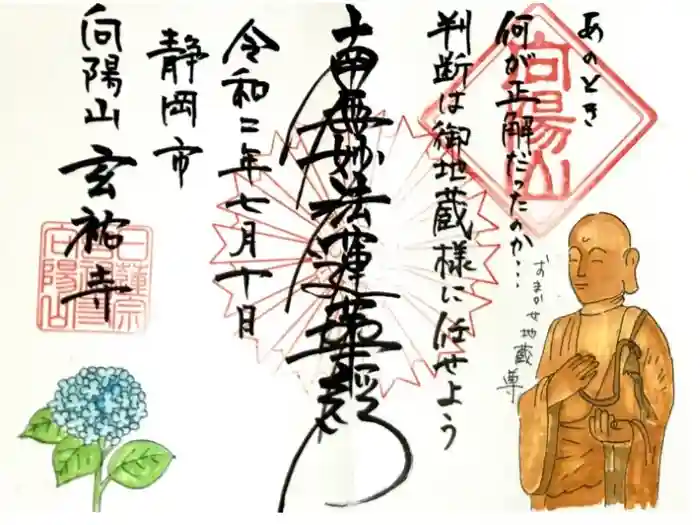 あのとき
何が正解だったのか…
判断は御地蔵様に任せよう
おまかせ地蔵尊
向陽山
南無妙法蓮華経
令和二年七月十日
静岡市
向陽山 玄祐寺